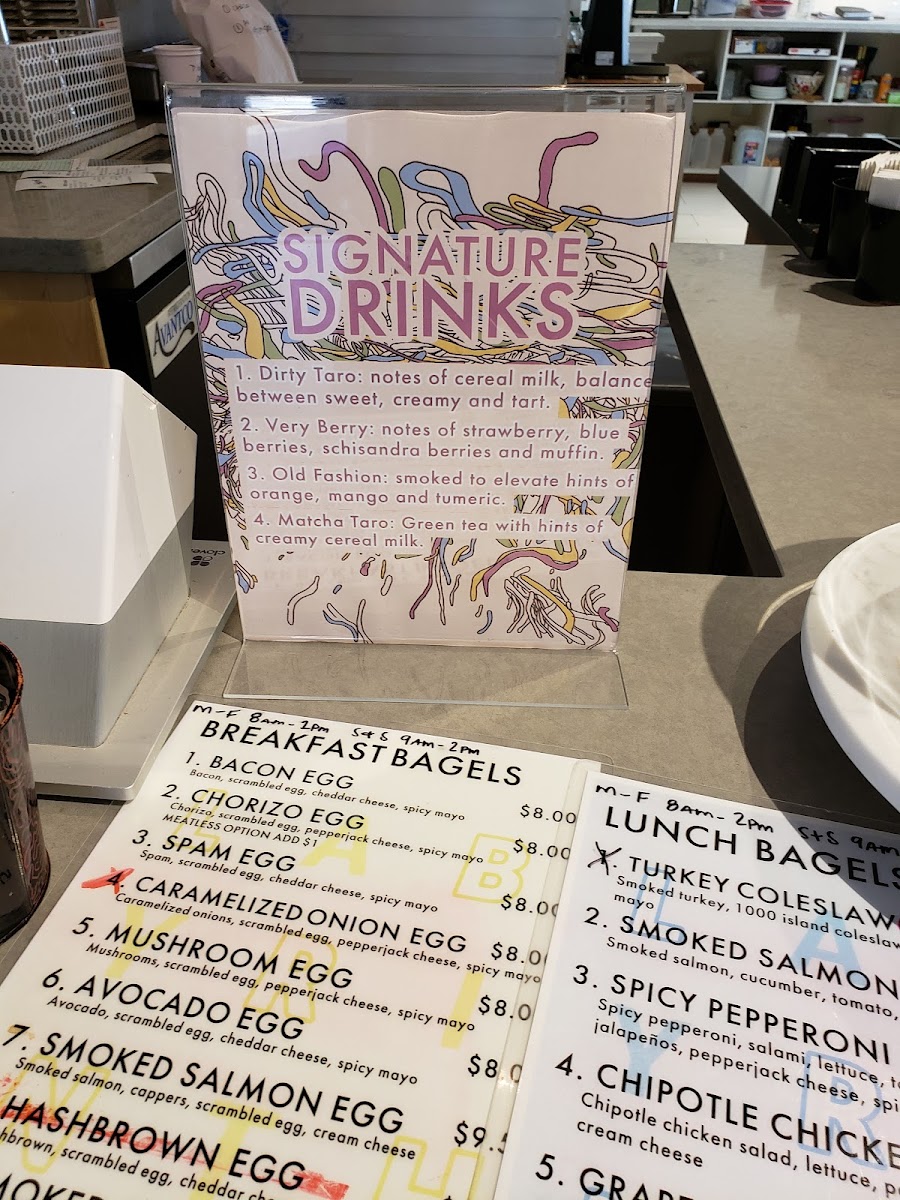 SIGNATURE
DRINKS
1. Dirty Taro: notes of cereal milk, balance
between sweet, creamy and tart.
2. Very Berry: notes of strawberry, blue
berries, schisandra berries and muffin.
3. Old Fashion: smoked to elevate hints of
orange, mango and tumeric.
4. Matcha Taro: Green tea with hints of
creamy cereal milk.
AVANTCO
clover
M-F 8AM-2PM S+S 9AM-2PM
BREAKFAST BAGELS
1. BACON EGG
Bacon, scrambled egg, cheddar cheese, spicy mayo $8.00
2. CHORIZO EGG
Chorizo, scrambled egg, pepperjack cheese, spicy mayo $8.00
MEATLESS OPTION ADD $1
3. SPAM EGG
Spam, scrambled egg, cheddar cheese, spicy mayo $8.00
4. CARAMELIZED ONION EGG
Caramelized onions, scrambled egg, pepperjack cheese, spicy mayo $8.0
5. MUSHROOM EGG
Mushrooms, scrambled egg, pepperjack cheese, spicy mayo $8.0
6. AVOCADO EGG
Avocado, scrambled egg, cheddar cheese, spicy mayo $8.0
7. SMOKED SALMON EGG
Smoked salmon, cappers, scrambled egg, cream cheese $9.5
HASHBROWN EGG
hbrown, scrambled egg, cheddar
M-F 8AM-2PM S+S 9AM
LUNCH BAGELS
1. TURKEY COLESLAW
Smoked turkey, 1000 island coleslaw
mayo
2. SMOKED SALMON
Smoked salmon, cucumber, tomato,
3. SPICY PEPPERONI
Spicy pepperoni, salami, lettuce,
jalapeños, pepperjack cheese,
4. CHIPOTLE CHICKE
Chipotle chicken salad, lettuce,
cream cheese
5.